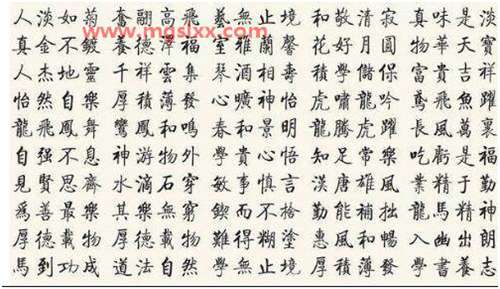 人淡如菊 奮翮高飛 藝無止境 和敬清寂 真味是淡
www.mgslxx.com
真金不鍍 養德 室雅蘭馨 花好月圓 物華天寶
人杰地靈 千祥雲集 琴酒相壽 積學儲 富貴吉祥
怡然自樂 厚積薄發 心曠神怡 虎嘯龍吟 鳶飛魚躍
龍飛鳳舞 鸞鳳和鳴 春和景明 龍騰虎躍 長風萬裏
自强不息 神游物外 學貴心悟 知足常樂 吃虧是福
見賢思齊 水滴石穿 敏事慎言 漢唐雄風 業精于勤
爲善最樂 其樂無窮 鍥而不捨 勤能補拙 龍馬精神
厚德載物 厚德載物 難得糊塗 惠風和暢 入幽出朗
馬到功成 道法自然 學無止境 厚積薄發 學書養志